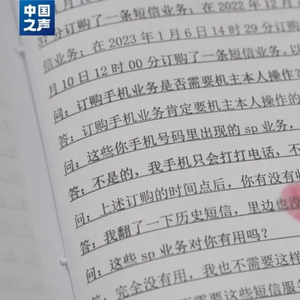 中国之声
月10日
分订购了一条短信业务；在2022年12月
信业务；在2023年1月6日14时29分订购
10日12时00分订购了一条短信业务，以
问：订购手机业务是否需要机主本人操作
答：订购手机业务肯定要机主本人操作的
问：这些你手机号码里出现的sp业务，
答：不是的，我手机只会打打电话，不
问：上述订购的时间点后，你有没有收
答：我翻了一下历史短信，里边也没
问：这些sp业务对你有用吗？
答：完全没有用，我也不需要这样
些短信服